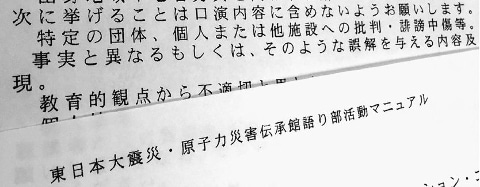 次に挙げることは口演内容に含めないようお願いします。
特定の団体、個人または他施設への批判・誹謗中傷等。
事実と異なるもしくは、そのような誤解を与える内容及
現。
教育的観点から不適切と
東日本大震災・原子力災害伝承館語り部活動マニュアル
ション・コ